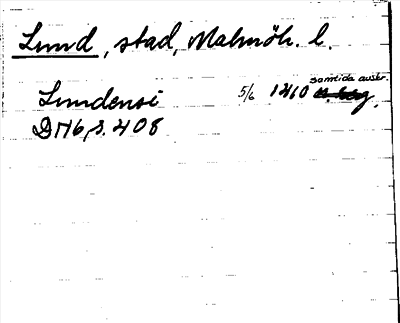 Lund, stad, Malmöh. l.
samtida avskr.
Lundensi 5/6 1410
DN6, s. 408